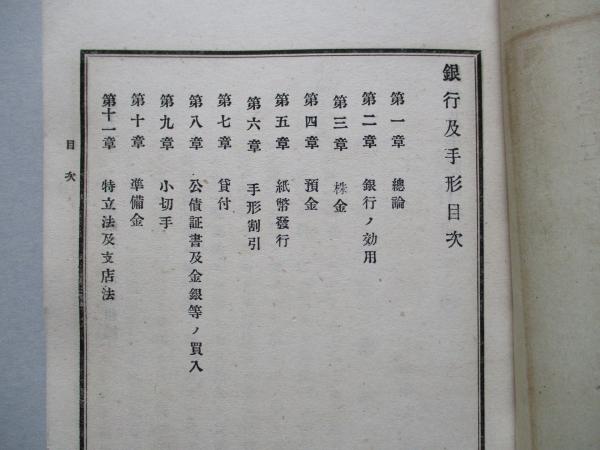 銀行及手形目次
第一章 總論
第二章 銀行ノ効用
第三章 株金
第四章 預金
第五章 紙幣發行
第六章 手形割引
第七章 貸付
第八章 公債証書及金銀等ノ買入
第九章 小切手
第十章 準備金
第十一章 特立法及支店法
目次